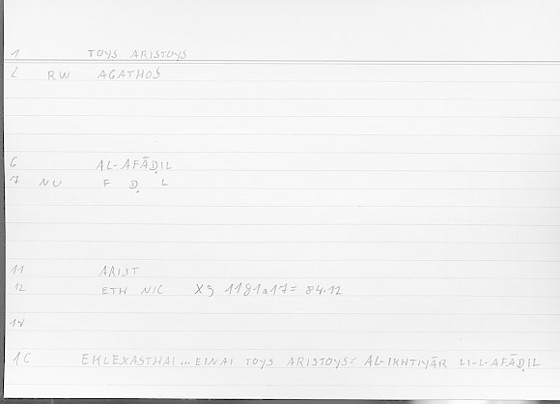 1 TOYS ARISTOYS
2 RW AGATHOS
6 AL-AFĀḌIL
7 NU F Ḍ L
11 ARIST
12 ETH NIC X9 1181a17= 84.12
14
16 EKLEXASTHAI... EINAI TOYS ARISTOYS= AL-IKHTIYĀR LI-L-AFĀḌIL